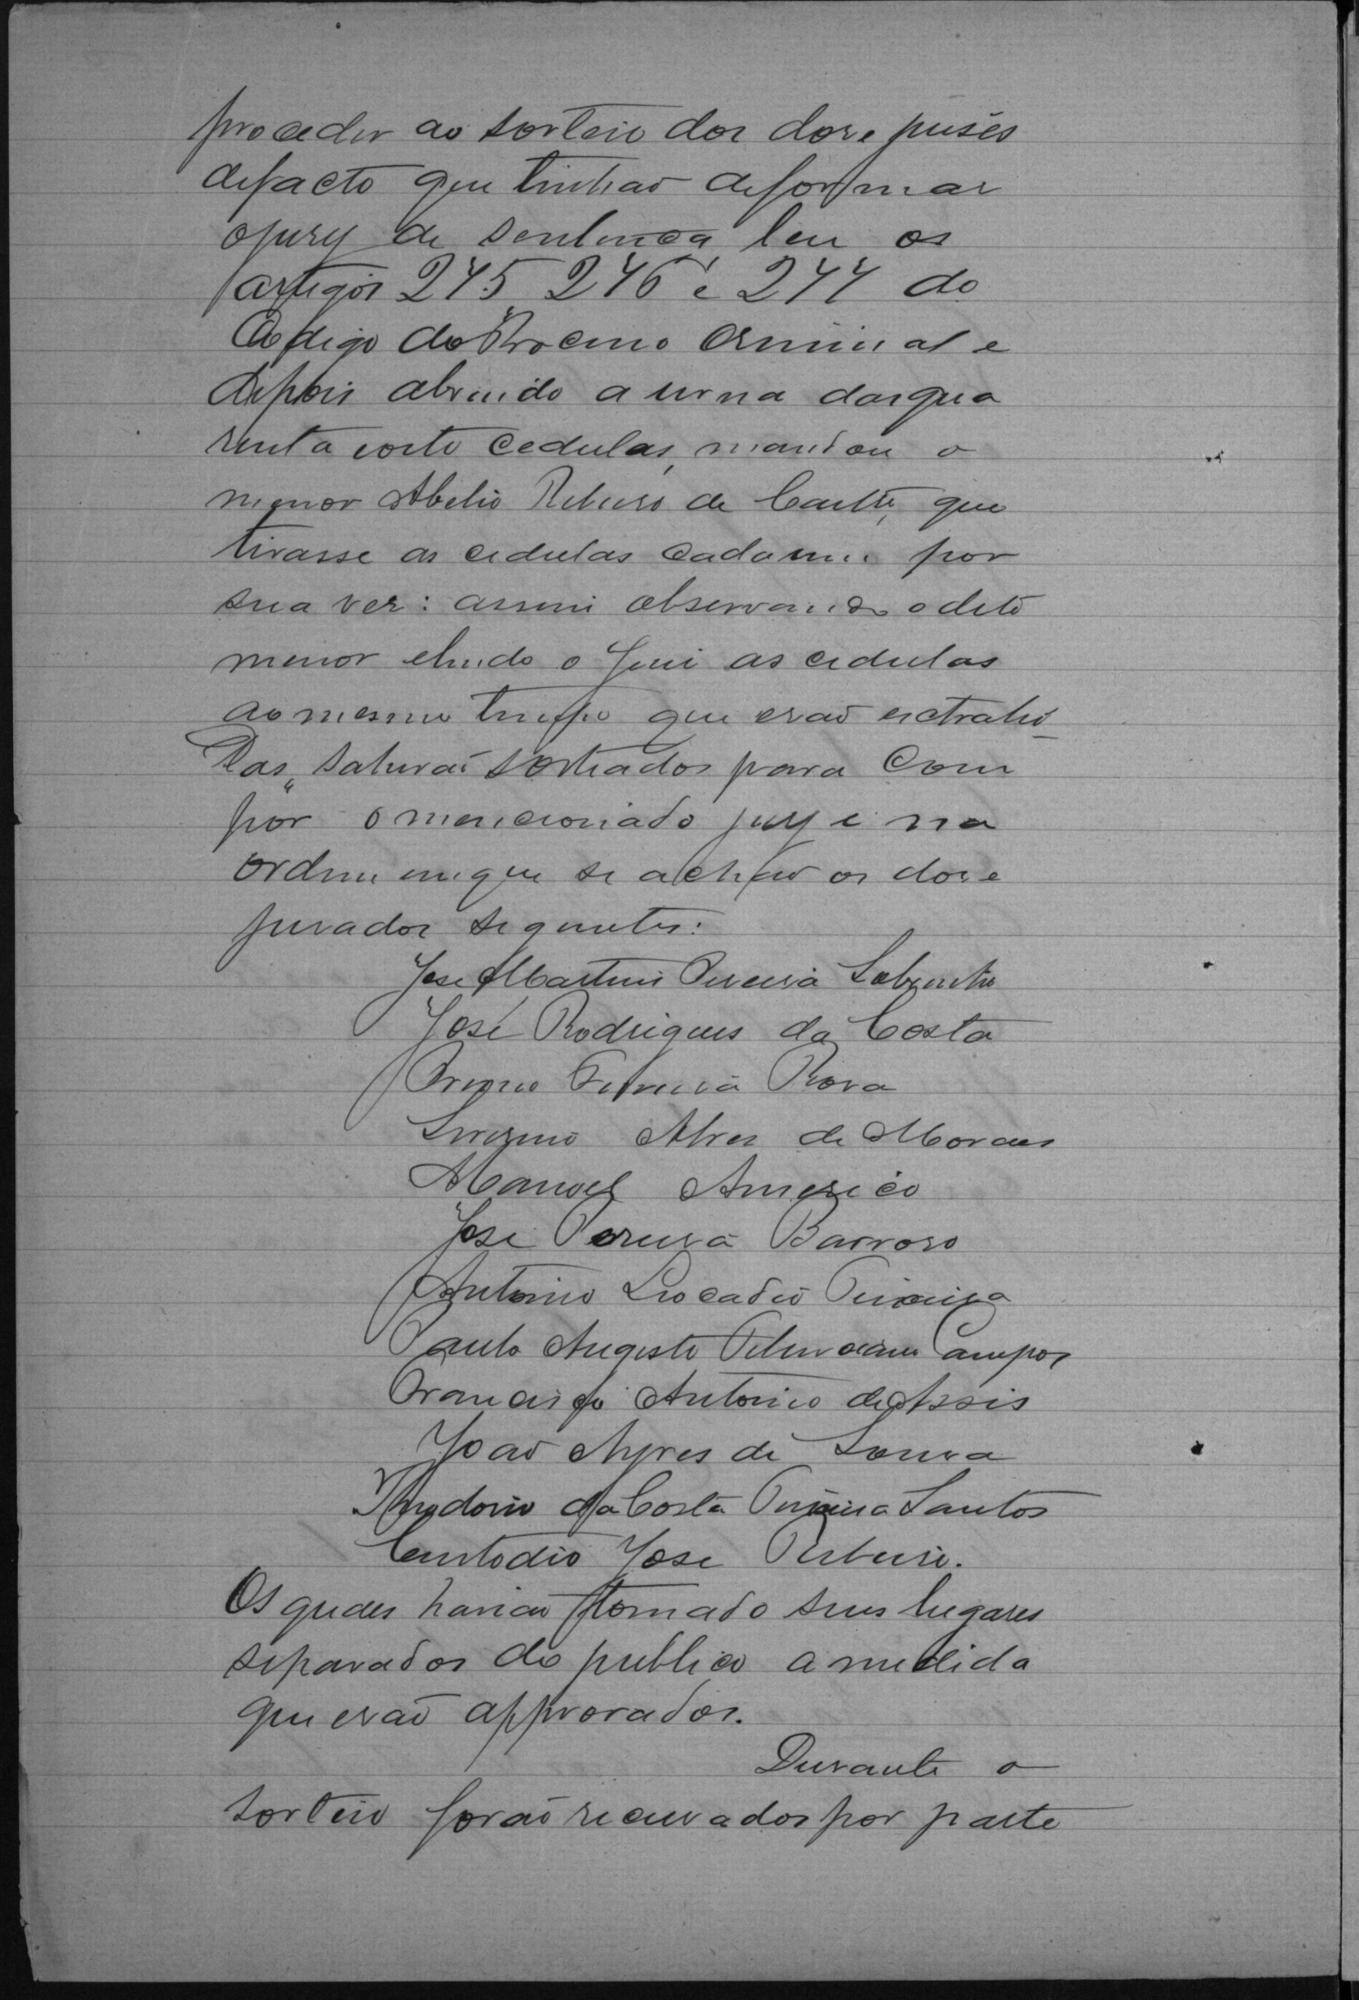 proceder ao sorteio dos doze juises
defacto que tinhão deformar
ojury de sentença, leu os
artigos 275, 276 e 277 do
Codigo do Processo Criminal e
depois abrindo a urna dasqua
renta coito cedulas, mandou o
menor Abelio Ribeiro de que
tirasse as cedulas cadauma por
sua vez: assim observando o dito
menor elendo o Juiz as cedulas
ao mesmo tempo que erão extrahi-
das, sahirão sorteados para Com
por o mencionado jury e na
ordem emque se achão os doze
jurados seguintes:
José Martins Pereira Sobrinho
José Rodrigues da Costa
Ferreira Rosa
Alves de Moraes
Manoel Americo
José Pereira Barroso
Antonio Leocadio
Paulo Augusto Campos
Francisco Antonio de Assis
João Ayres de Souza
Theodorio da Costa Pereira Santos
Custodio José Ribeiro.
Os quaes havião tomado seus lugares
separados do publico a medida
que erão approvados.
Durante o
sorteio forão recusados por parte